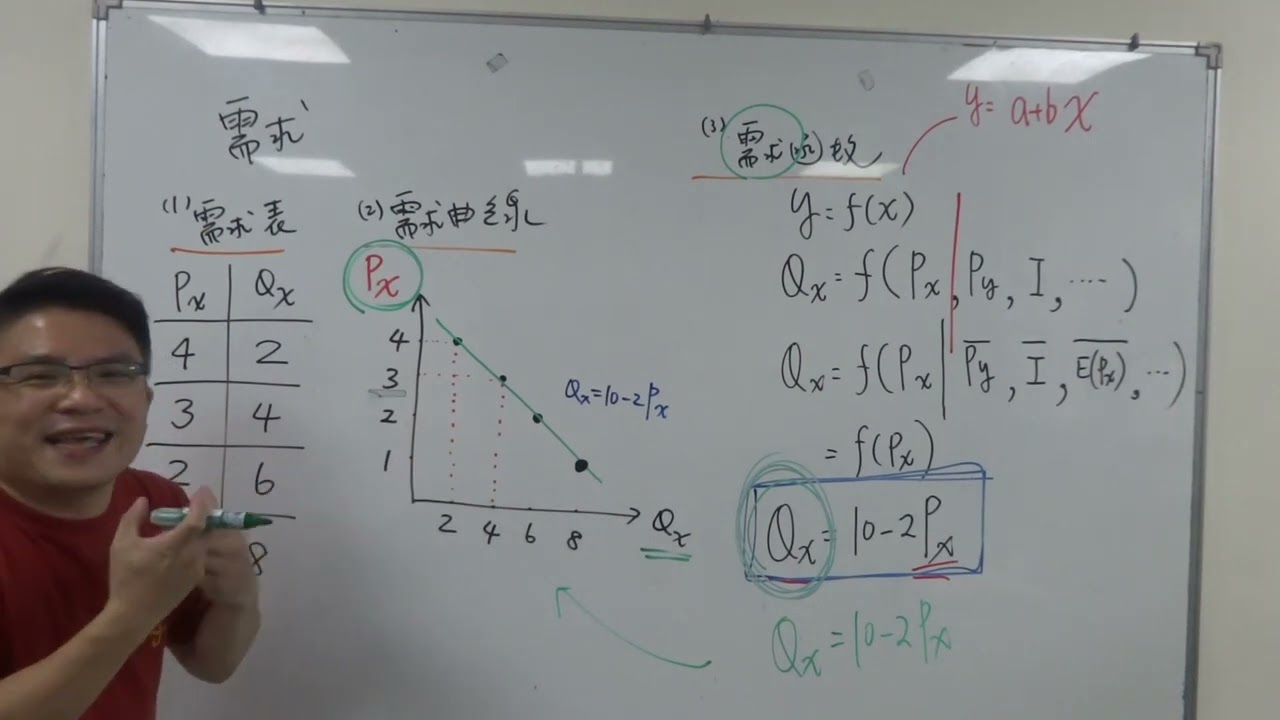 需求
(1) 需求表
Px Qx
4 2
3 4
2 6
8
(2) 需求曲線
Px
4
3
2
1
2 4 6 8
Qx
Qx=10-2Px
(3) 需求(函)数
y=a+bx
y=f(x)
Qx=f(Px,Py,I,....)
Qx=f(Px|P̅y,I̅,E(Px)̅,...)
=f(Px)
Qx=10-2Px
Qx=10-2Px